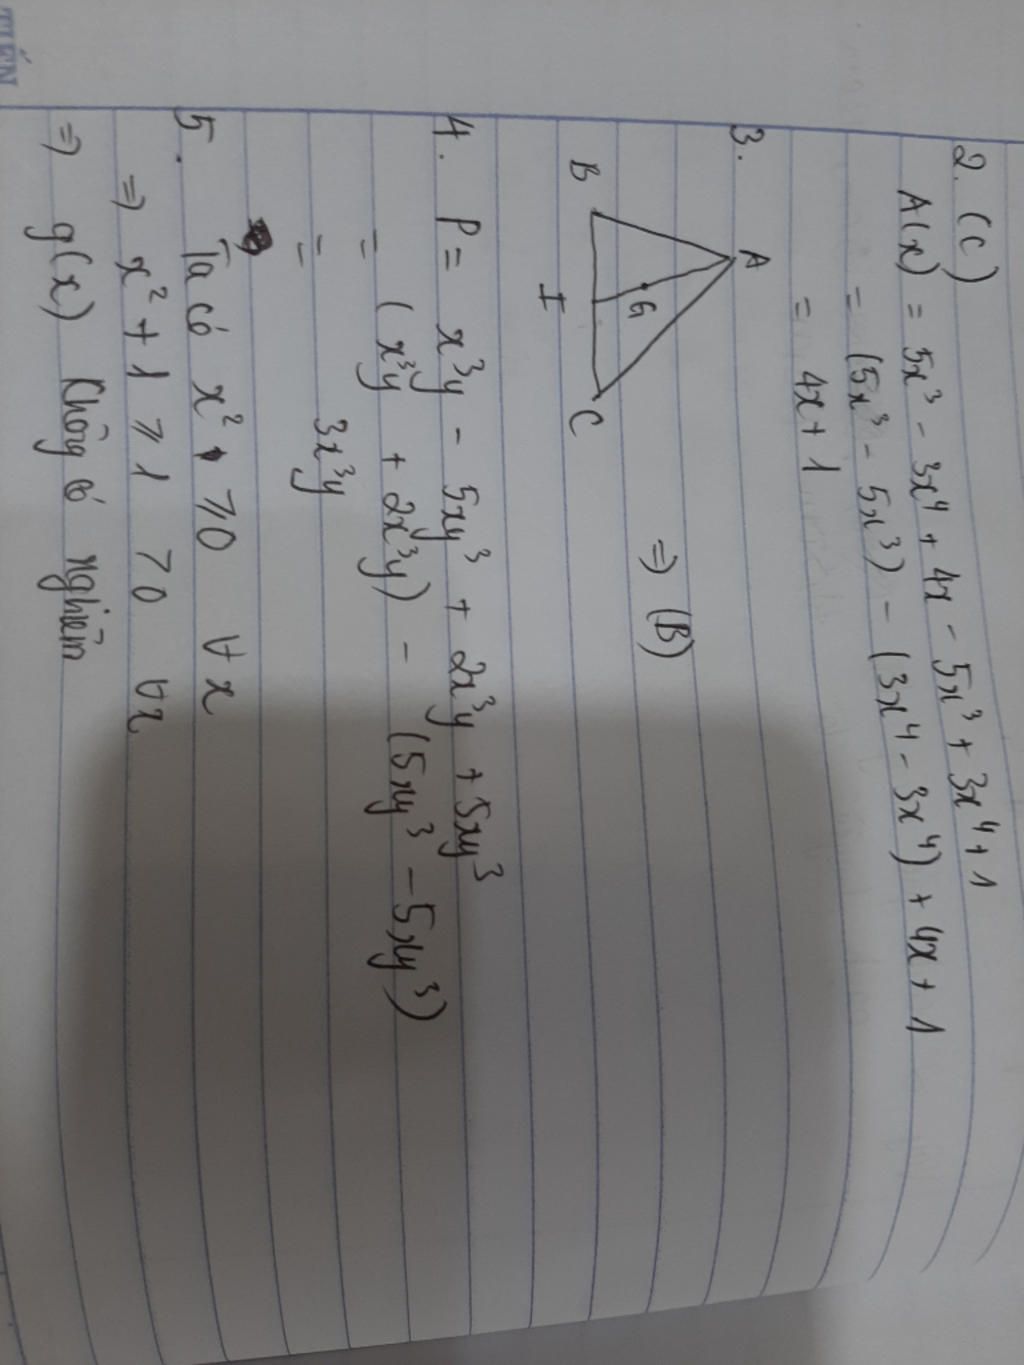 TIẾN
2. (C)
A(x) = 5x³ - 3x⁴ + 4x - 5x³ + 3x⁴ + 1
= (5x³ - 5x³) - (3x⁴ - 3x⁴) + 4x + 1
= 4x + 1
3.
A
G
B
I
C
⇒ (B)
4. P = x³y - 5xy³ + 2x³y + 5xy³
= (x³y + 2x³y) - (5xy³ - 5xy³)
= 3x³y
5. Ta có x² ≥ 0 ∀x
⇒ x² + 1 ≥ 1 > 0 ∀x
⇒ g(x) không có nghiệm